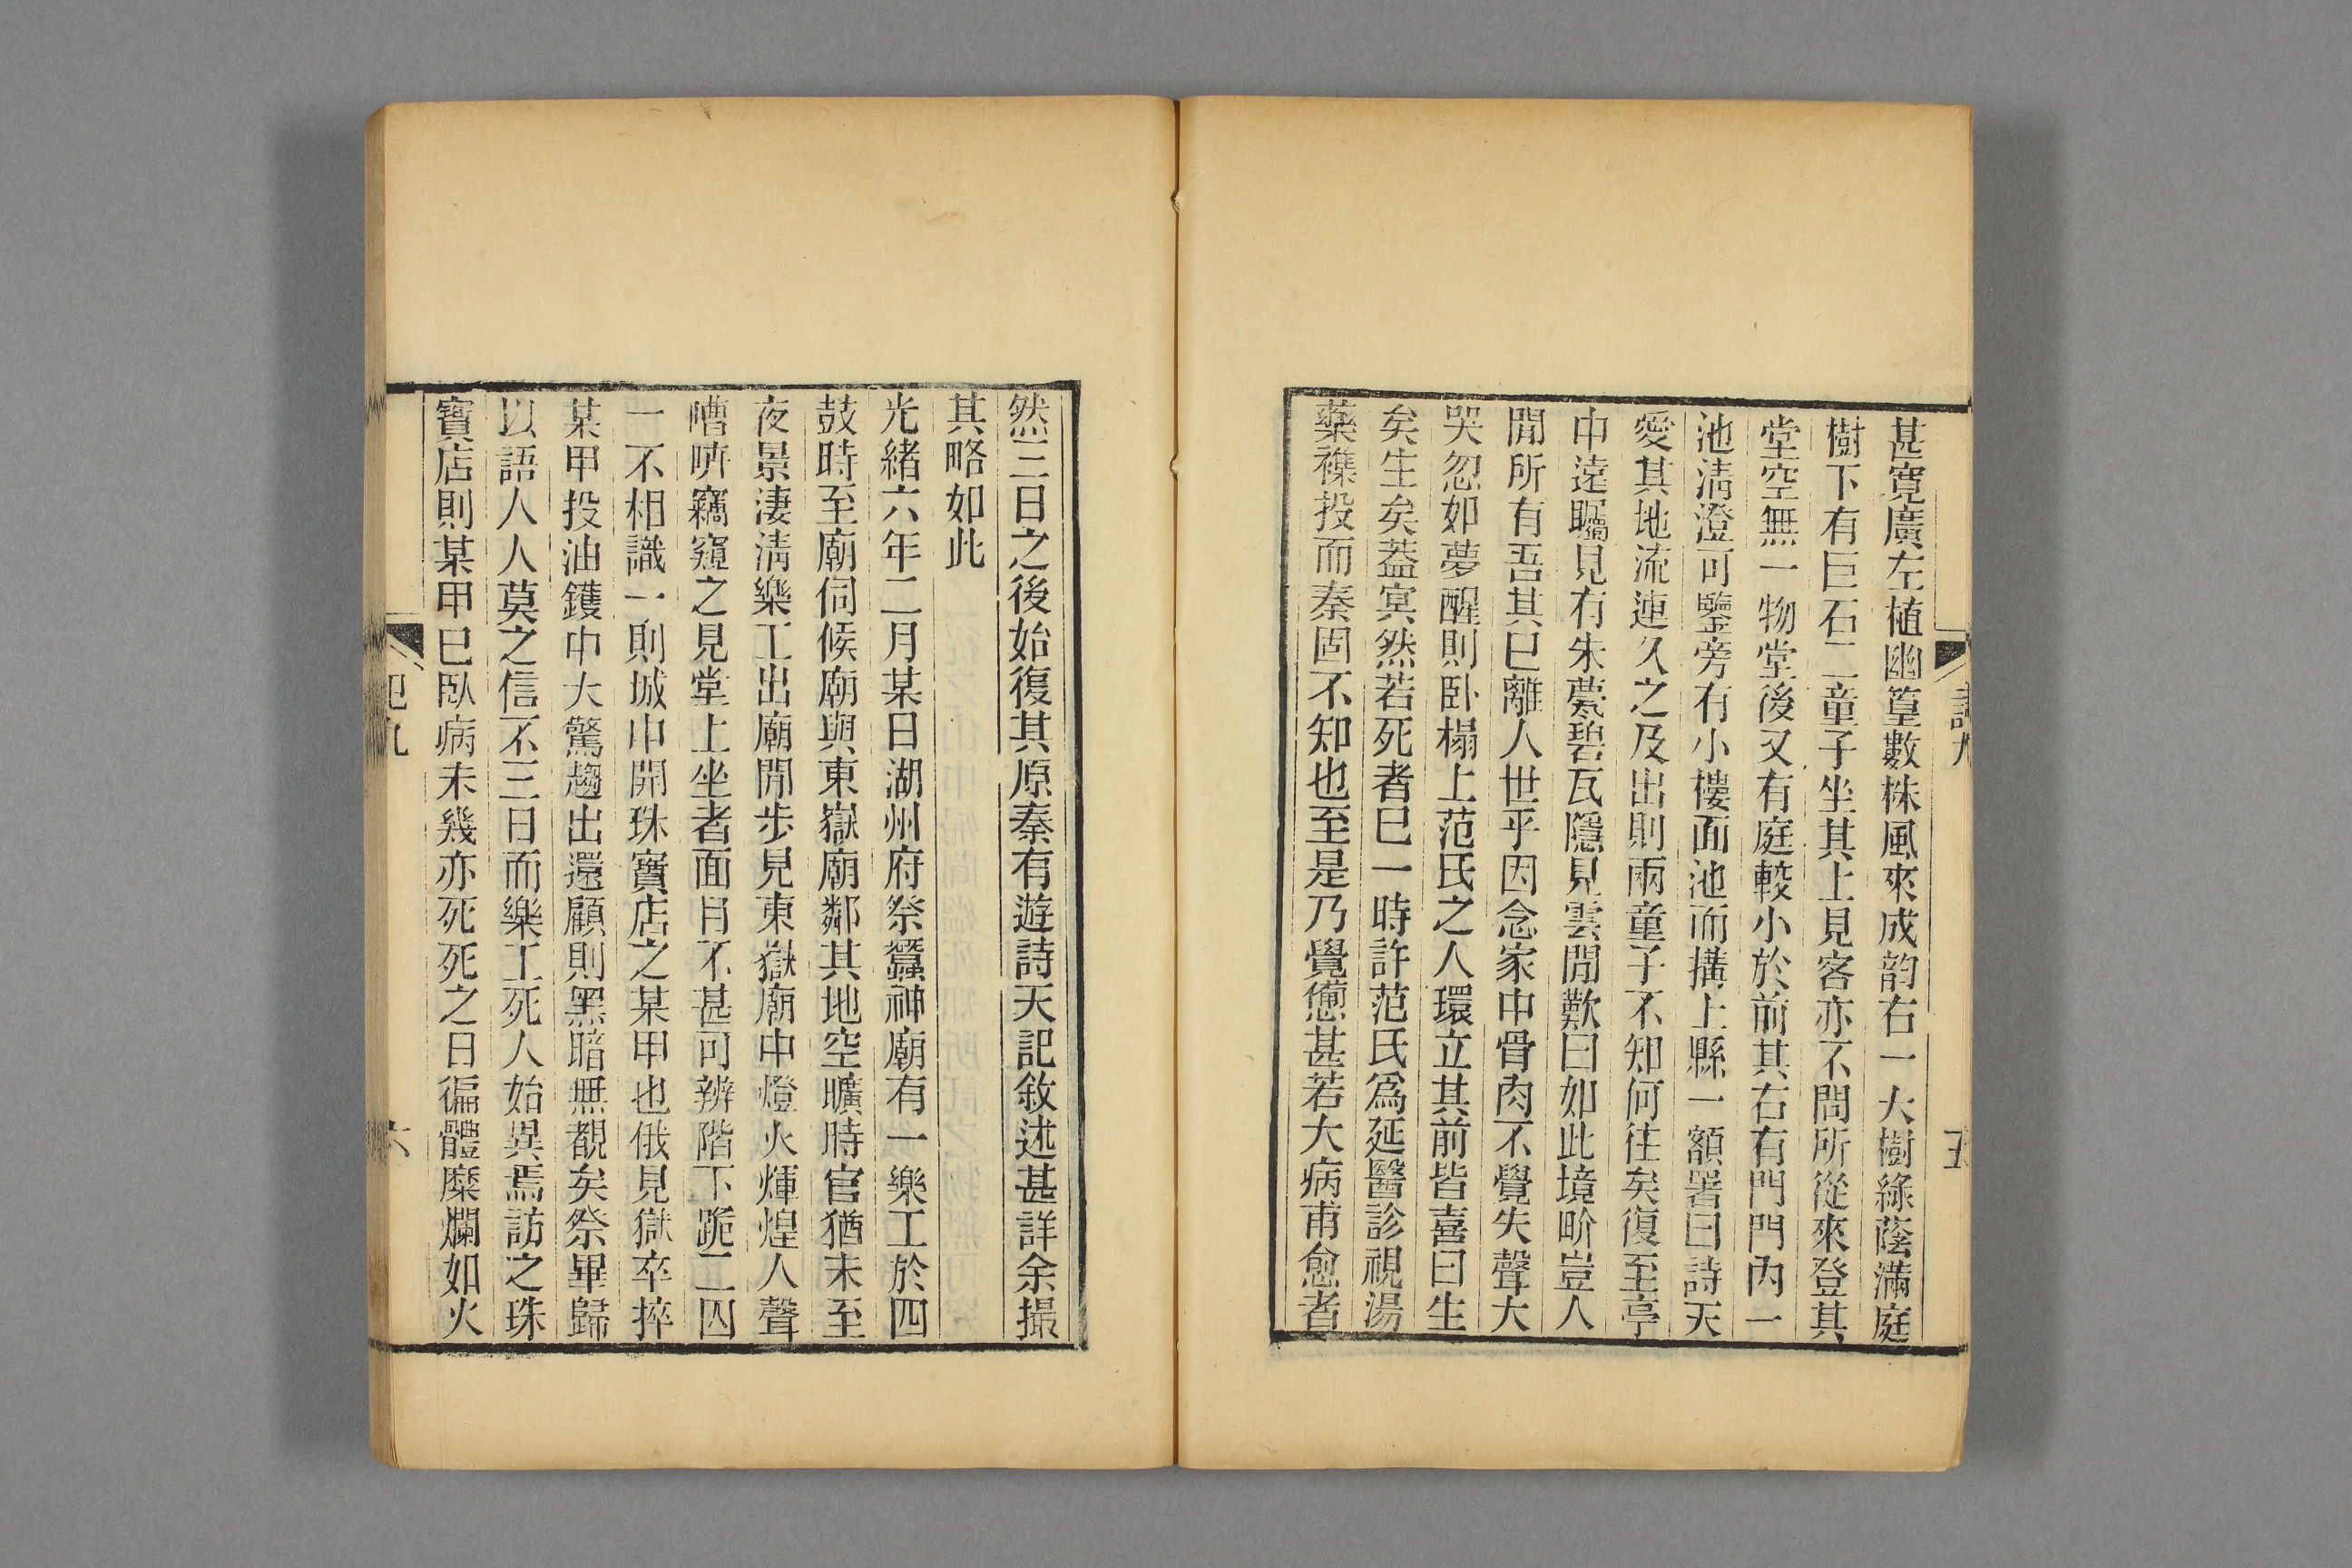 甚寬廣左植幽篁數株風來成韵右一大樹綠蔭滿庭
樹下有巨石二童子坐其上見客亦不問所從來登其
堂空無一物堂後又有庭較小於前其右有門門內一
池淸澄可鑒旁有小樓面池而搆上縣一額署曰詩天
愛其地流連久之及出則兩童子不知何往矣復至亭
中遠矚見有朱甍碧瓦隱見雲閒歎曰如此境畍豈人
閒所有吾其已離人世乎因念家中骨肉不覺失聲大
哭忽如夢醒則卧榻上范氏之人環立其前皆喜曰生
矣生矣葢寞然若死者已一時許范氏爲延醫診視湯
藥襍投而秦固不知也至是乃覺憊甚若大病甫愈者
五
然三日之後始復其原秦有遊詩天記敘述甚詳余撮
其略如此
光緒六年二月某日湖州府祭蠶神廟有一樂工於四
鼓時至廟伺候廟與東嶽廟鄰其地空曠時官猶未至
夜景淒淸樂工出廟閒步見東嶽廟中燈火煇煌人聲
嘈嚌竊窺之見堂上坐者面目不甚可辨階下跪二囚
一不相識一則城中開珠寶店之某甲也俄見獄卒捽
某甲投油鑊中大驚趨出還顧則黑暗無覩矣祭畢歸
以語人人莫之信不三日而樂工死人始異焉訪之珠
寶店則某甲已臥病未幾亦死死之日徧體糜爛如火
六